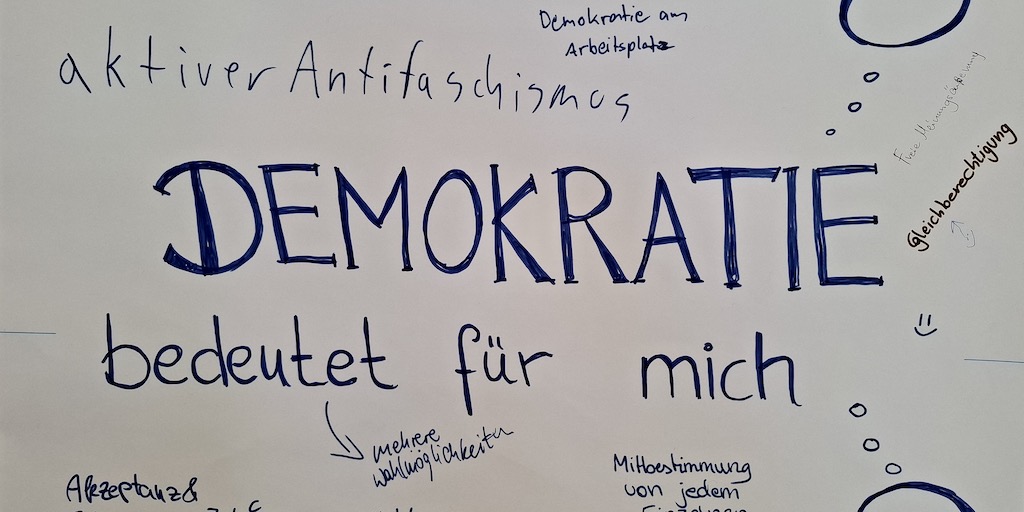 Demokratie am
Arbeitsplatz
aktiver Antifaschismus
Freie Meinungsäußerung
Gleichberechtigung
DEMOKRATIE
bedeutet für mich
mehrere
wahlmöglichkeiten
Akzeptanz &
Mitbestimmung
von jedem
Einzelnen